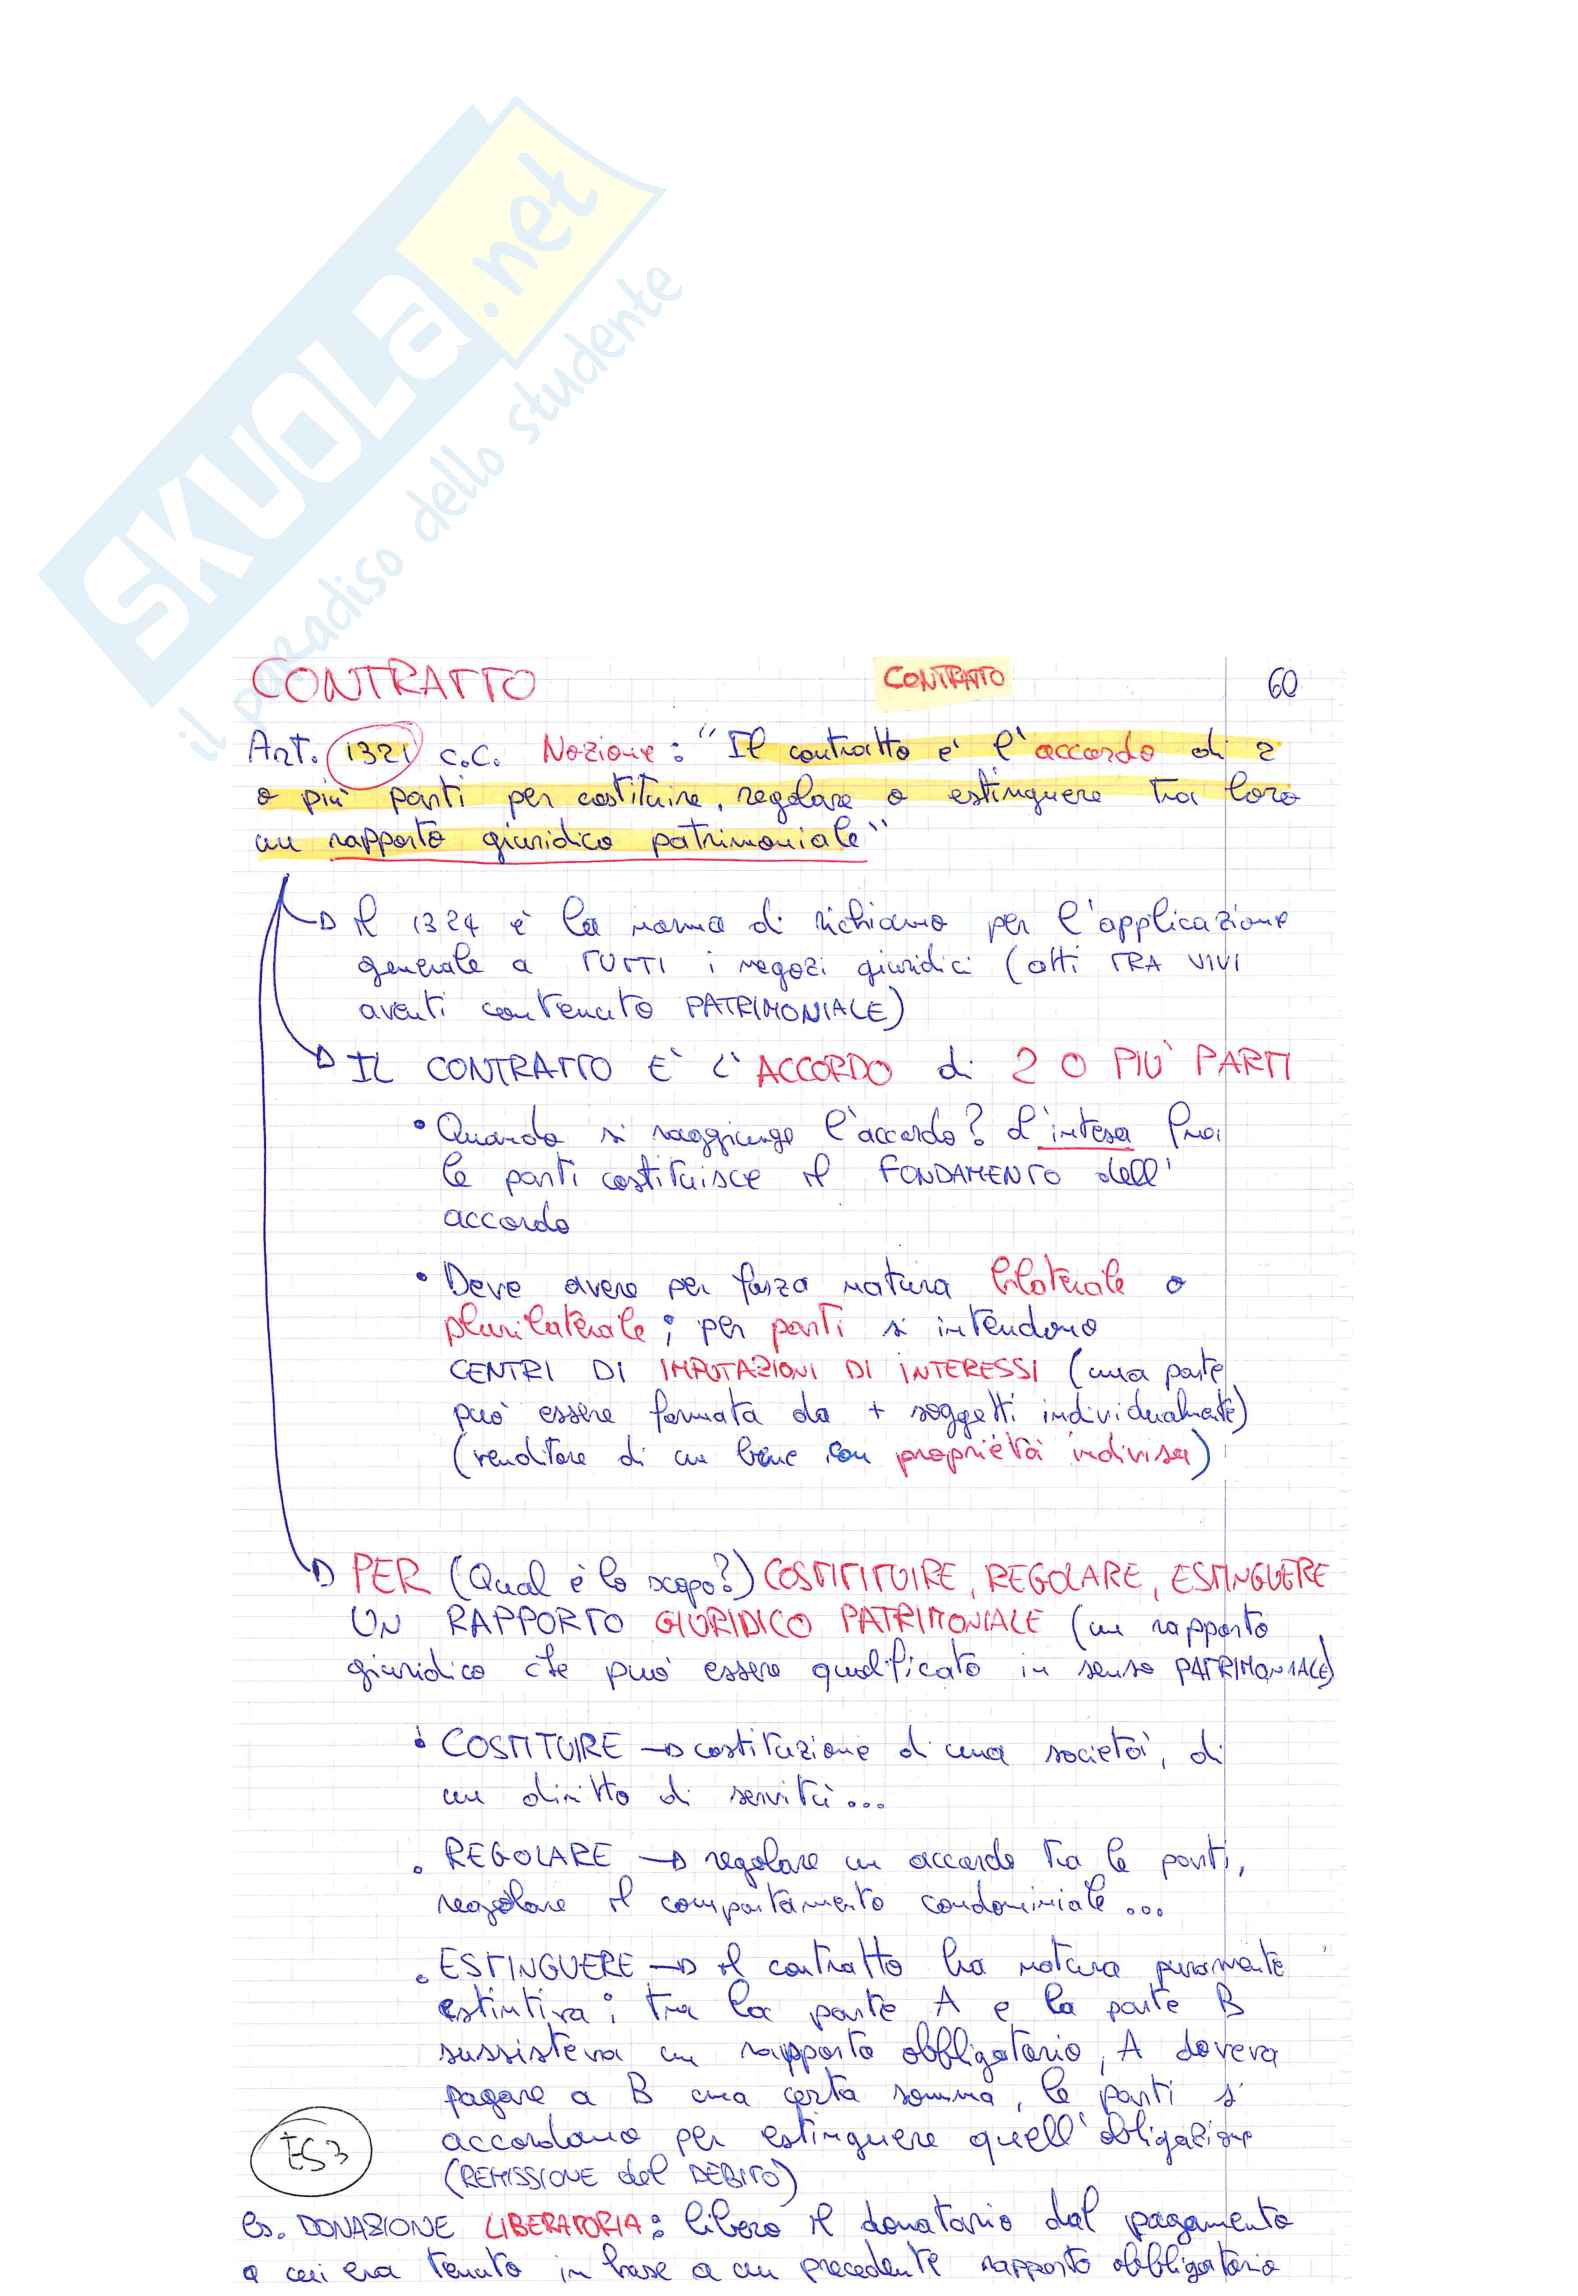 SKUOLa.net
il paradiso dello studente
CONTRATTO
CONTRATTO
60
Art. 1321 c.c. Nozione: "Il contratto è l'accordo di 2
o più parti per costituire, regolare o estinguere tra loro
un rapporto giuridico patrimoniale"
Il 1324 è la norma di richiamo per l'applicazione
generale a TUTTI i negozi giuridici (atti TRA VIVI
aventi contenuto PATRIMONIALE)
IL CONTRATTO E' L'ACCORDO di 2 O PIU' PARTI
• Quando si raggiunge l'accordo? L'intesa fra
le parti costituisce il FONDAMENTO dell'
accordo
• Deve avere per forza natura bilaterale o
plurilaterale; per parti si intendono
CENTRI DI IMPUTAZIONI DI INTERESSI (una parte
può essere formata da + soggetti individualmente)
(venditore di un bene con proprietà indivisa)
PER (Qual è lo scopo?) COSTITITUIRE, REGOLARE, ESTINGUERE
UN RAPPORTO GIURIDICO PATRIMONIALE (un rapporto
giuridico che può essere qualificato in senso PATRIMONIALE)
• COSTITUIRE → costituzione di una società, di
un diritto di servitù...
• REGOLARE → regolare un accordo tra le parti,
regolare il comportamento condominiale...
• ESTINGUERE → il contratto ha natura puramente
estintiva; tra la parte A e la parte B
sussisteva un rapporto obbligatorio, A doveva
pagare a B una certa somma, le parti si
accordano per estinguere quell'obligazione
(REMISSIONE del DEBITO)
ES 3
es. DONAZIONE LIBERATORIA: libero il donatario dal pagamento
a cui era tenuto in base a un precedente rapporto obbligatorio